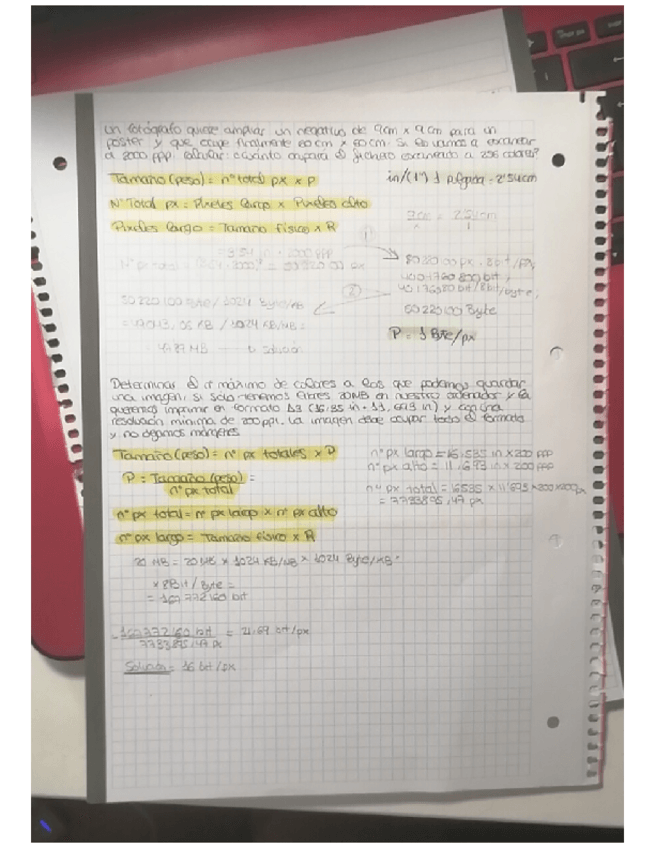 Un fotógrafo quiere ampliar un negativo de 9cm x 9cm para un
poster y que ocupe finalmente 60 cm x 60 cm. Si lo vamos a escanear
a 2000 ppp. Calcular: cuánto ocupará el fichero escaneado a 256 colores?
Tamaño (peso) = nº total px x P
in/(1") 1 Pulgada = 2'54cm
Nº Total px = Píxeles largo x Píxeles alto
Píxeles largo = Tamaño físico x R
9cm = 2'54cm
x 1
3'54 in x 2000 ppp
1
Nº px total
50220100 px . 8bit/px
401760800 bit
/8bit/byte
2
50220100 Byte / 1024 Byte/KB
50220100 Byte
KB / 1024 KB/MB =
P = 1 Byte/px
MB → solución
Determinar el nº máximo de colores a los que podemos guardar
una imagen, si solo tenemos libres 20MB en nuestro ordenador y la
queremos imprimir en formato A3 (16.535 in x 11,693 in) y con una
resolución mínima de 200ppi. La imagen debe ocupar todo el formato
y no dejamos márgenes
Tamaño (peso) = nº px totales x P
nº px largo = 16.535 in x 200 ppp
nº px alto = 11.693 in x 200 ppp
P = Tamaño (peso) =
nº px total
nº px total = 16535 x 11'693 x 200 x 200 px
= 7733895,47 px
nº px total = nº px largo x nº px alto
nº px largo = Tamaño físico x R
20 MB = 20 MB x 1024 KB/MB x 1024 Byte/KB *
x 8Bit/Byte =
= 167772160 bit
167772160 bit = 21.69 bit/px
7733895,47 px
Solución = 16 bit/px